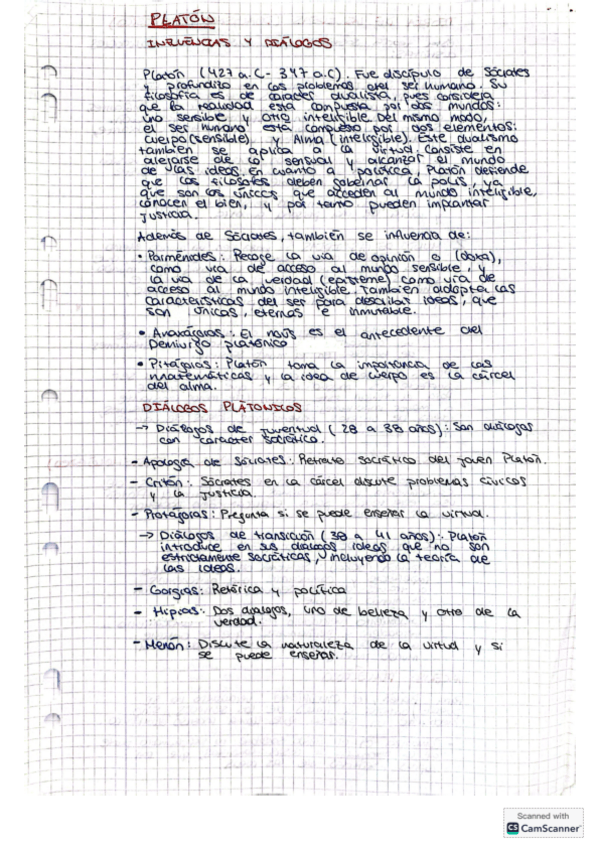 PLATÓN
INFLUENCIAS Y DIÁLOGOS
Platón (427 a.C - 347 a.C). Fue discípulo de Sócrates
y profundizo en los problemas del ser humano. Su
filosofía es de carácter dualista, pues considera
que la realidad está compuesta por dos mundos:
uno sensible y otro inteligible. Del mismo modo,
el ser humano está compuesto por dos elementos:
cuerpo (sensible) y Alma (inteligible). Este dualismo
también se aplica a la virtud. Consiste en
alejarse de lo sensual y alcanzar el mundo
de las ideas. en cuanto a política, Platón defiende
que los filósofos deben gobernar la polis, ya
que son los únicos que acceden al mundo inteligible,
conocen el bien, y por tanto pueden implantar
justicia.
Además de Sócrates, también se influencia de:
• Parménides: Recoge la vía de opinión o (doxa),
como vía de acceso al mundo sensible, y
la vía de la verdad (episteme) como vía de
acceso al mundo inteligible. También adopta las
características del ser para describir ideas, que
son únicas, eternas e inmutable.
• Anaxágoras: El noûs es el antecedente del
Demiurgo platónico
• Pitágoras: Platón toma la importancia de las
matemáticas y la idea de cuerpo es la cárcel
del alma.
DIÁLOGOS PLATÓNICOS
→ Diálogos de juventud (28 a 38 años): Son diálogos
con carácter socrático.
- Apología de Sócrates: Retrato socrático del joven Platón.
- Critón: Sócrates en la cárcel discute problemas cívicos
y la justicia.
- Protágoras: Pregunta si se puede enseñar la virtud.
→ Diálogos de transición (38 a 41 años): Platón
introduce en sus diálogos ideas que no son
estrictamente socráticas, incluyendo la teoría de
las ideas.
- Gorgias: Retórica y política
- Hipias: Dos dialogos, uno de belleza y otro de la
verdad.
- Menón: Discute la naturaleza de la virtud y si
se puede enseñar.
Scanned with
CS CamScanner